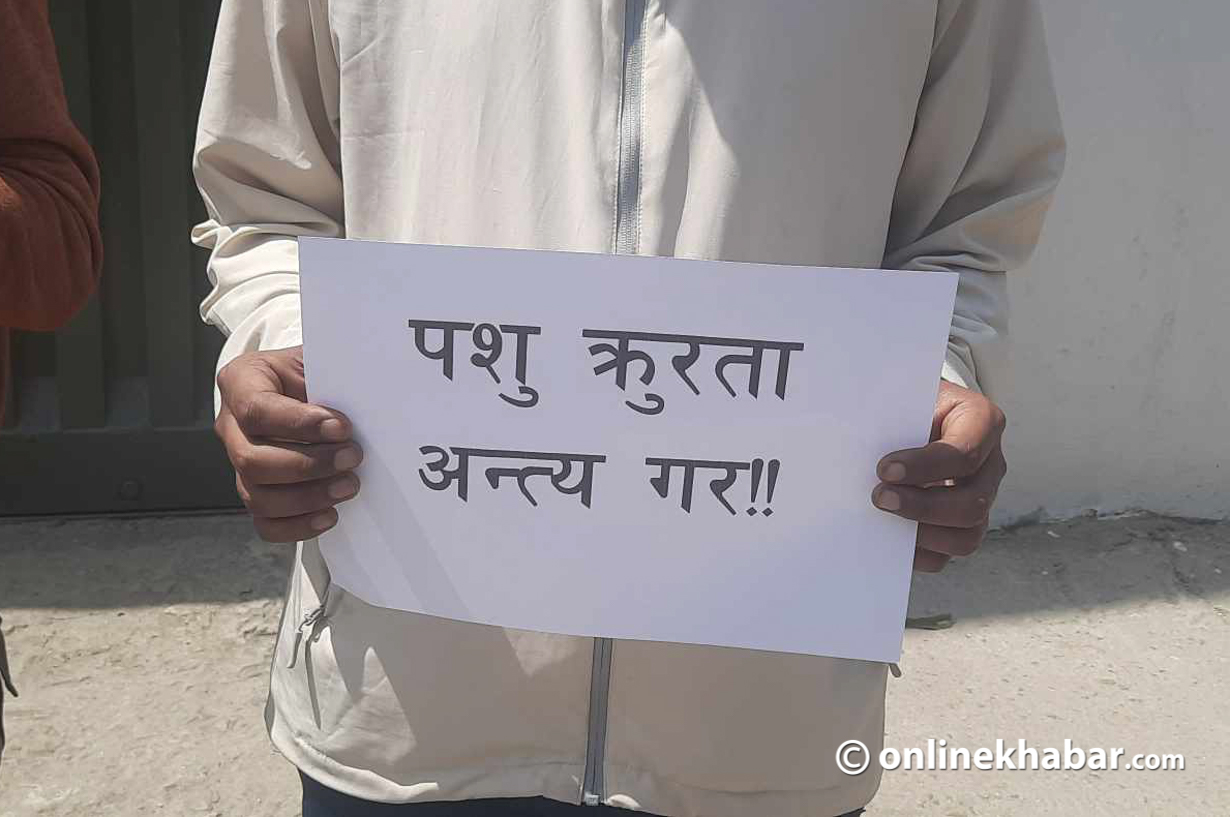 पशु क्रुरता
अन्त्य गर!!
© onlinekhabar.com